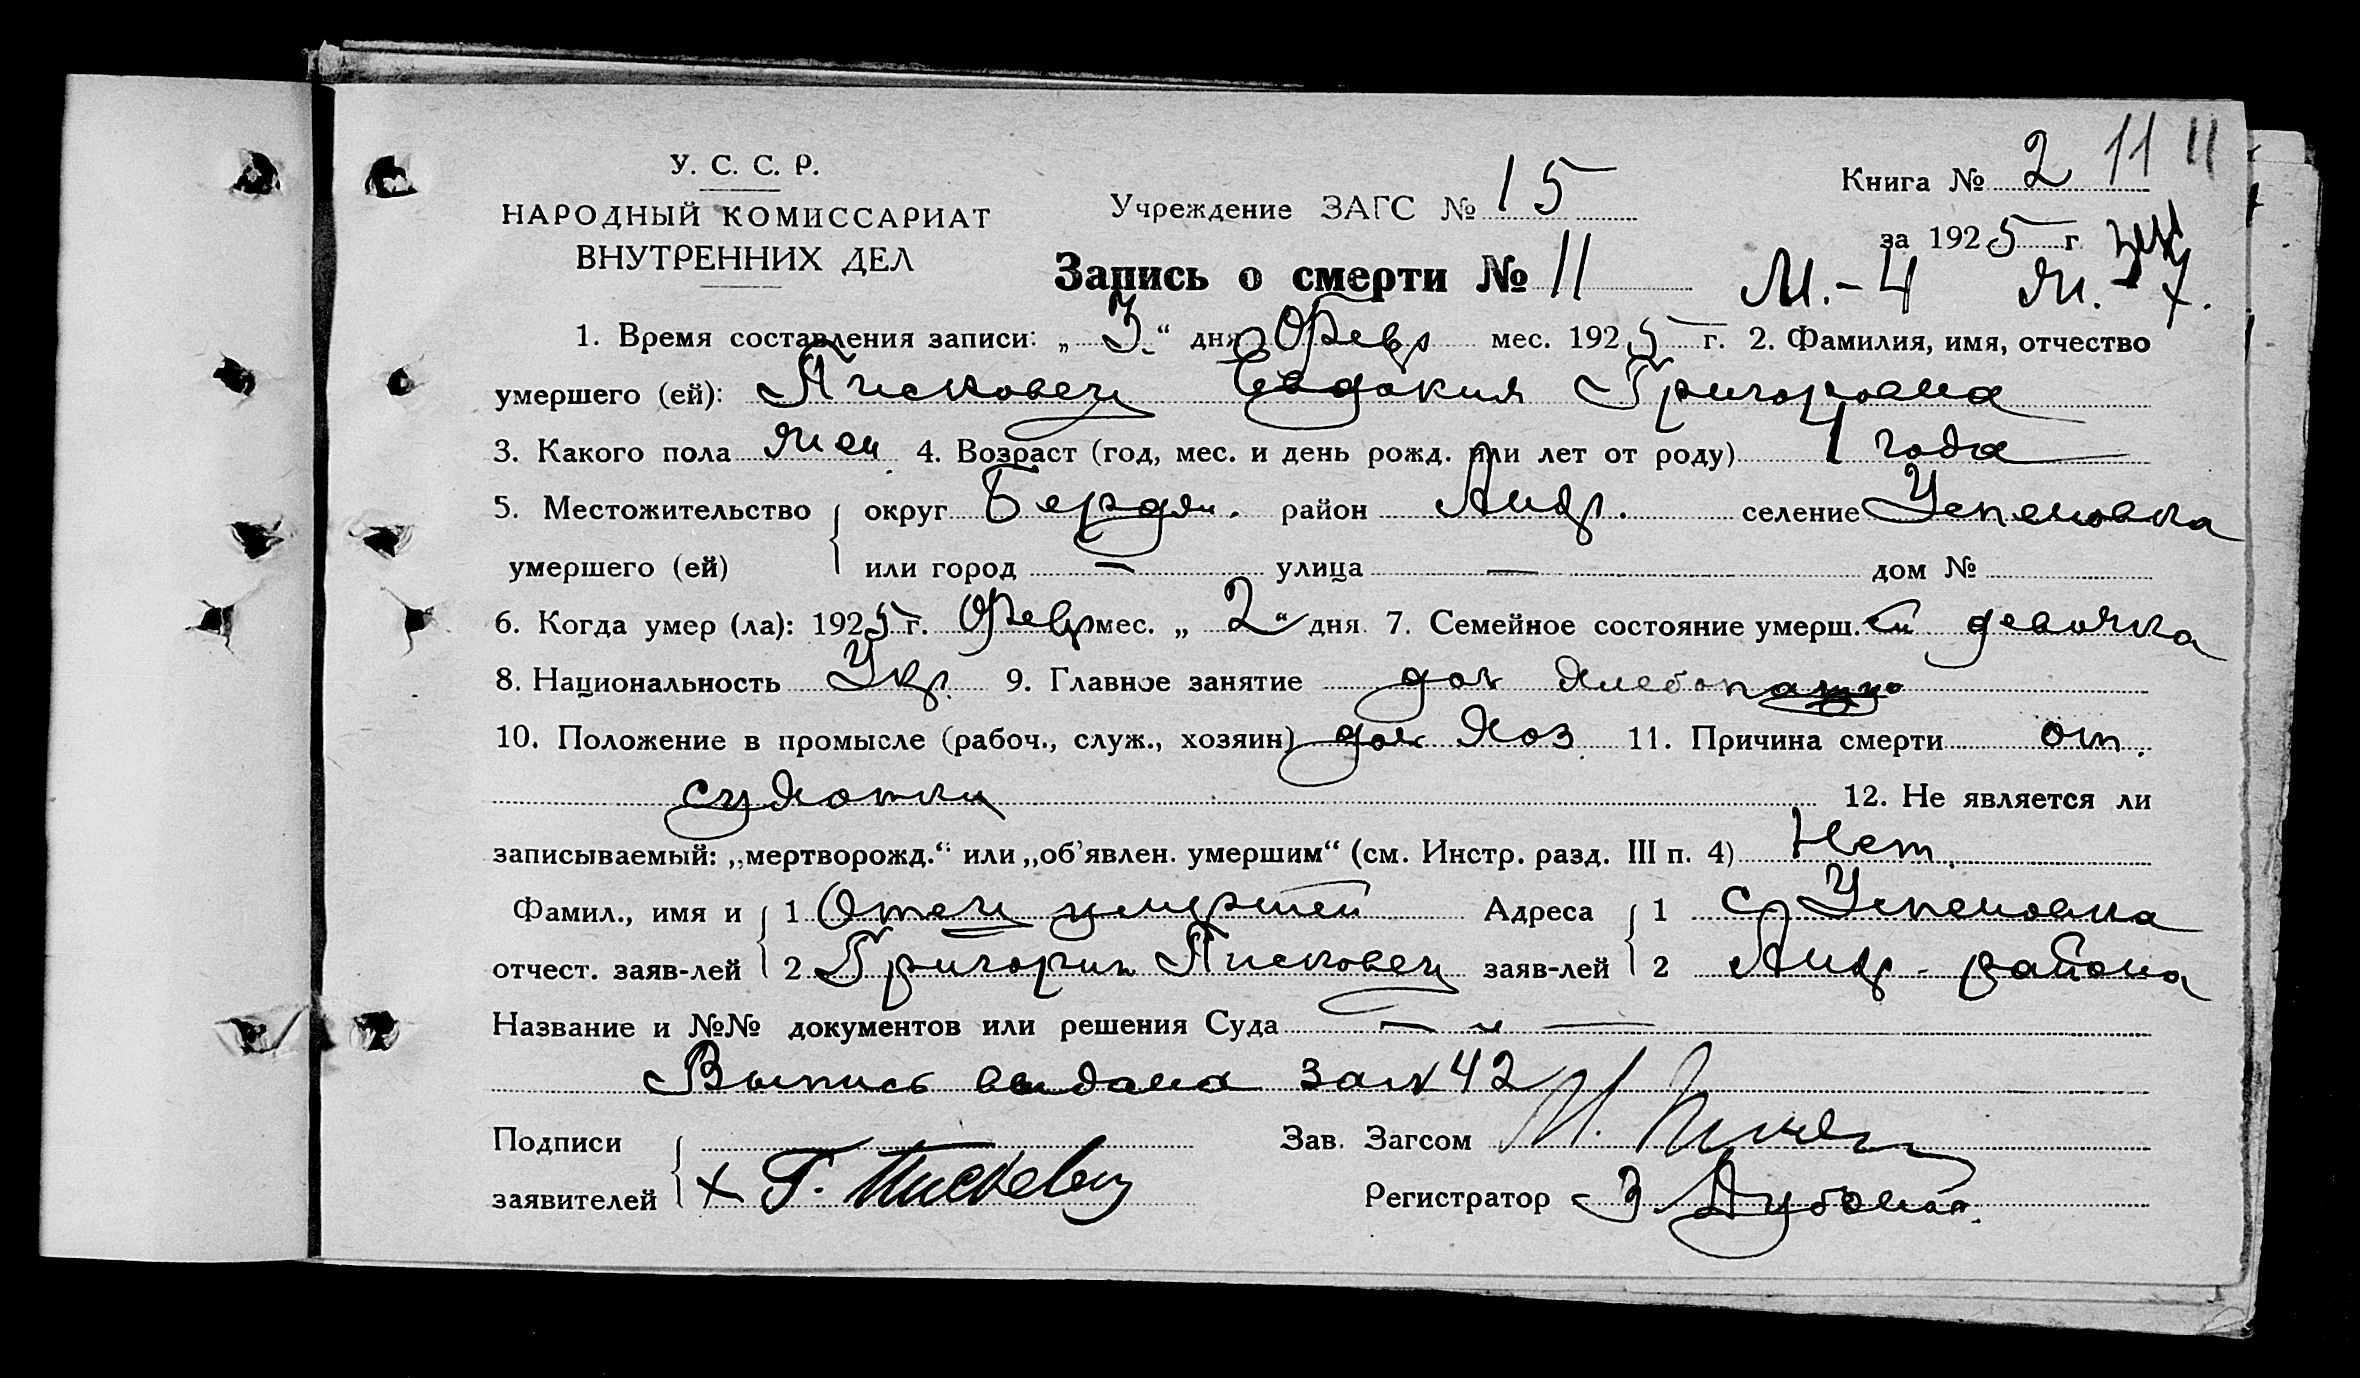 У. С. С. Р.
НАРОДНЫЙ КОМИССАРИАТ
ВНУТРЕННИХ ДЕЛ
Учреждение ЗАГС № 15
Книга № 2 11 11
за 1925 г.
Запись о смерти № 11 М.-4
1. Время составления записи: „3“ дня Февр мес. 1925 г. 2. Фамилия, имя, отчество
умершего (ей): Писковец Евдокия Григоровна
3. Какого пола жен 4. Возраст (год, мес. и день рожд. или лет от роду) 4 года
5. Местожительство округ Бердян. район Андр. селение Успеновка
умершего (ей) или город — улица — дом №
6. Когда умер (ла): 1925 г. Февр мес. „2“ дня 7. Семейное состояние умерш. ей девочка
8. Национальность Укр. 9. Главное занятие доч
10. Положение в промысле (рабоч., служ., хозяин) доч хоз 11. Причина смерти от
сухотки 12. Не является ли
записываемый: „мертворожд.“ или „об’явлен. умершим“ (см. Инстр. разд. III п. 4) Нет.
Фамил., имя и 1 Отец умершей Адреса 1 с Успеновка
отчест. заяв-лей 2 Григорий Писковец заяв-лей 2 Андр. района
Название и №№ документов или решения Суда — „ —
Выпись выдана за № 42
Подписи Зав. Загсом
заявителей х Г. Писковец Регистратор